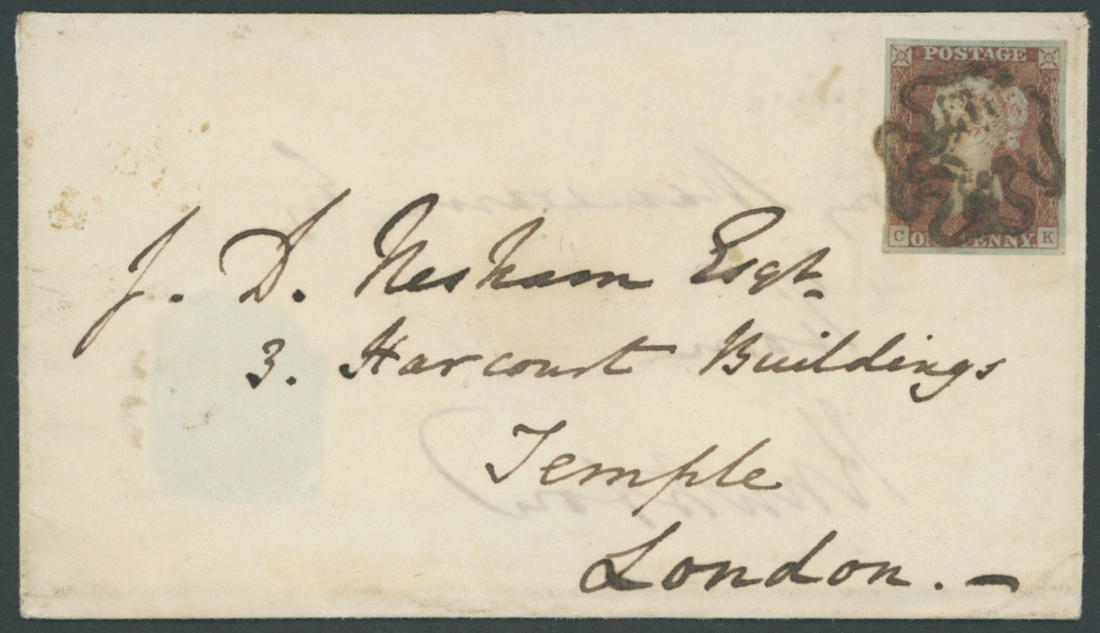 POSTAGE
C ONE PENNY K
J. D. Nesham Esqr.
3. Harcourt Buildings
Temple
London. —